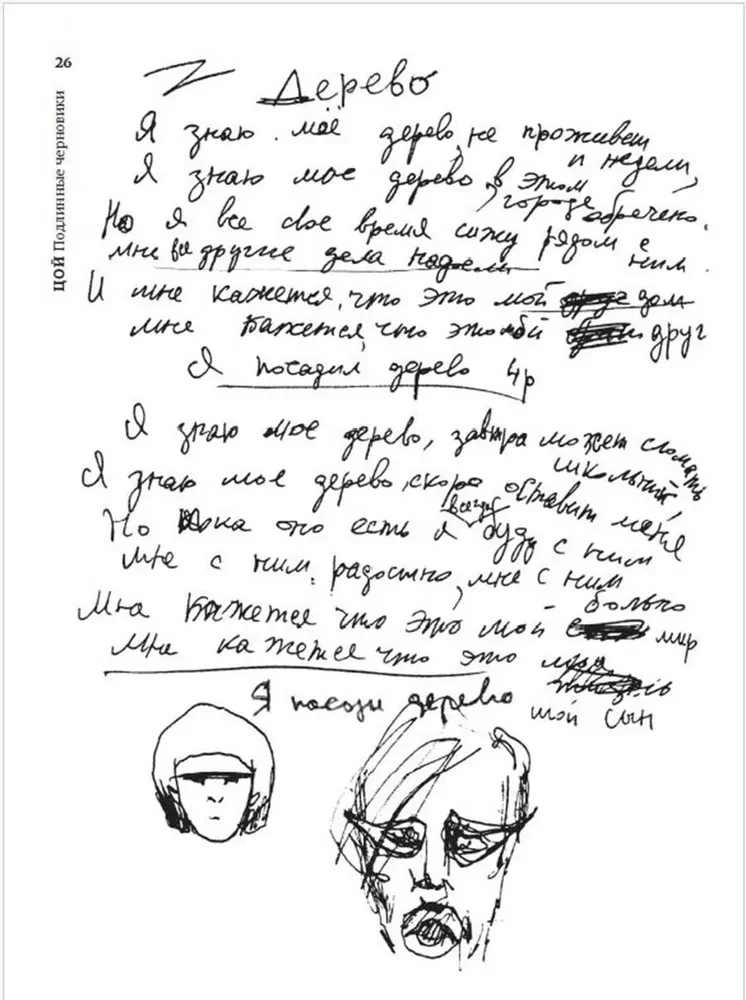 26
ЦОЙ Подлинные черновики
Дерево
Я знаю моё дерево, не проживет
и недели,
Я знаю мое дерево в этом
городе обречено.
Но я все свое время сижу рядом с
ним
мне все другие дела надоели
И мне кажется, что это мой друг дом
мне кажется, что это мой друг
Я посадил дерево 4р
Я знаю мое дерево, завтра может сломать
школьник,
Я знаю мое дерево, скоро оставит меня
Но пока оно есть я всегда буду с ним
мне с ним радостно, мне с ним
больно
Мне кажется что это мой мир
Мне кажется что это
жизнь
мой сын
Я посади дерево